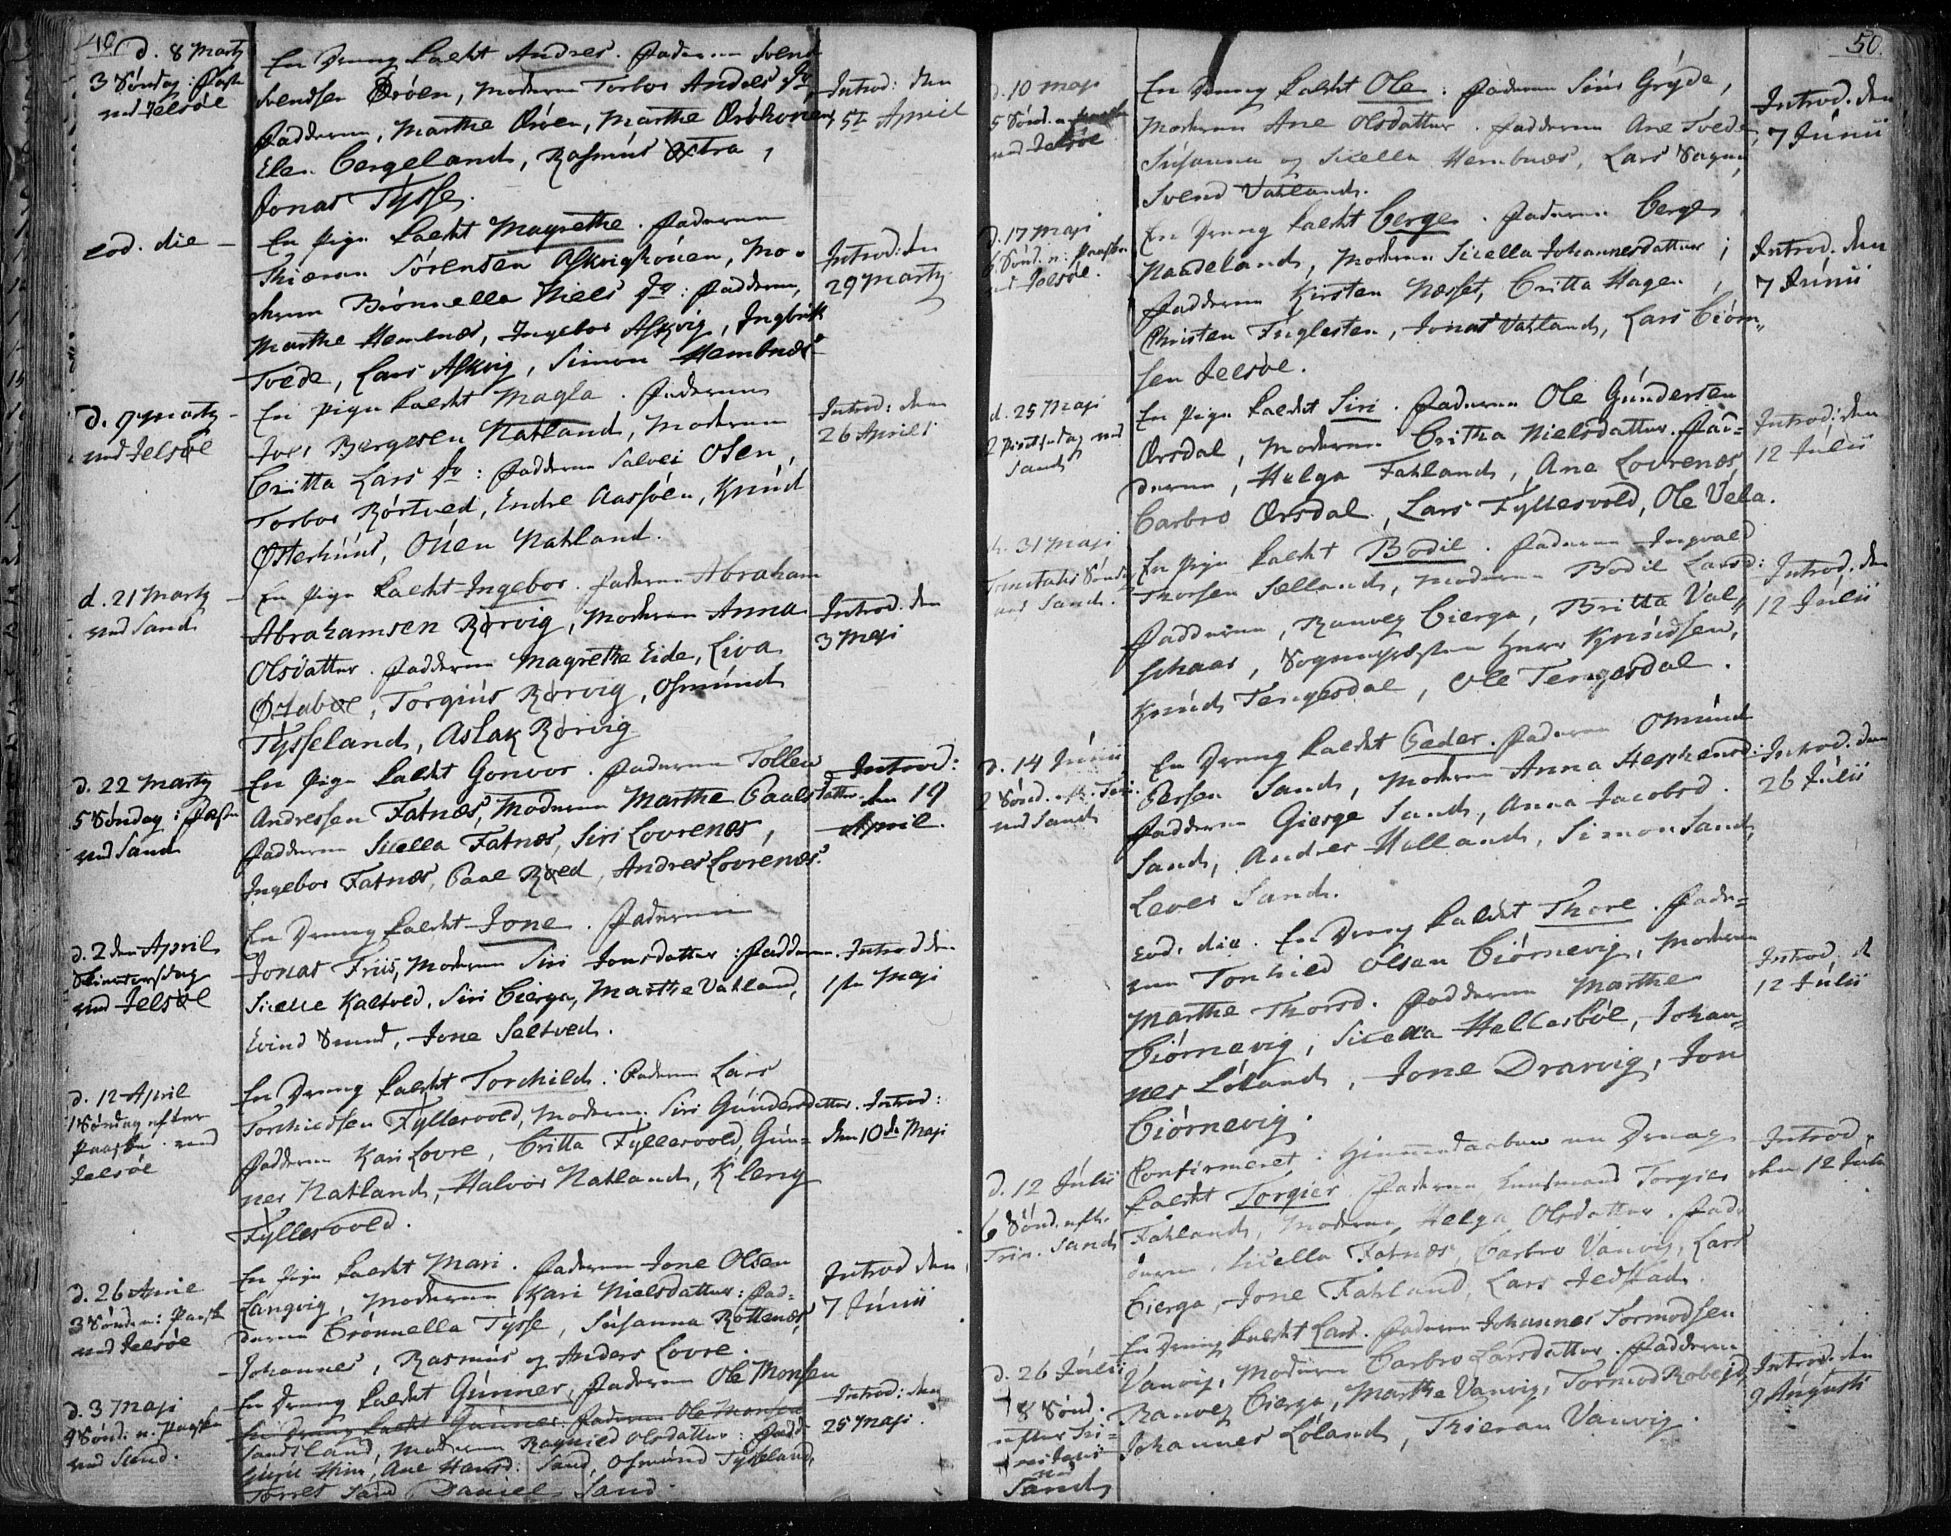 d. 8 Marty
3 Søndag i Faste
ved Jelsøe
En Dreng kaldt Andres. Faderen Svend
Svendsen Øróen, Moderen Torbor Andres Dr.
Fadderne, Marthe Øróen, Marthe
Elen Bergeland, Rasmus Østraa,
Jonas Tysse.
Introd: den
5te April
eod. die
En Pige kaldt Magrethe. Faderen
Sørensen Askvighóuen, Mo-
deren Brónnella Niels Dr: Fadderne,
Marthe Hembnes, Ingebor Askvig,
Tvede, Lars Askvig, Simon Hembnes
Introd: den
29 Marty
d. 9 Marty
ved Jelsøe
En Pige kaldt Magla. Faderen
Iver Bergesen Natland, Moderen
Britta Lars Dr: Fadderne Salvei Osen,
Torbor Rórtved, Endre Aarsóen, Knud
Østerhuus, Ouen Natland.
Introd: den
26 April
d. 21 Marty
ved Sand
En Pige kaldt Ingebor. Faderen Abraham
Abrahamsen Rørvig, Moderen Anna
Olsdatter. Fadderne Magrethe Eide, Liva
Østabøe, Torgius Rørvig, Osmund
Tysseland, Aslak Rórvig
Introd. den
3 Maji
d. 22 Marty
5 Søndag i Faste
ved Sand
En Pige kaldt Gonvor. Faderen Tollev
Andressen Fatnes, Moderen Marthe Paalsdatter.
Fadderne Sicella Fatnes, Siri Lovrenes,
Ingebor Fatnes, Paal Røed, Andres Lovrenes.
Introd:
den 19
April.
d. 2den April
Skiertorsdag
ved Jelsøe
En Dreng kaldt Jone. Faderen
Jonas Friis, Moderen Siri Jonsdatter: Fadderne.
Sicelle Kaltved, Siri Bierge, Marthe Vatland,
Evind Smed, Jone Seltved.
Introd den
1ste Maji
d. 12 April
1 Søndag efter
Paaske ved
Jelsøe
En Dreng kaldt Torchild: Faderen Lars
Torchildsen Fyllesvold, Moderen Siri Gundersdatter.
Fadderne Kari Lovre, Britta Fyllesvold, Gun-
ner Natland, Halvor Natland, Kleng
Fyllesvold.
Introd:
den 10de Maji
d. 26 April
3 Sønd: n: Paaske
ved Jelsøe
En Pige kaldt Mari. Faderen Jone Olsen
Langvig, Moderen Kari Nielsdatter: Fad-
derne Brónnella Tysse, Susanna Rottenes,
Johannes, Rasmus og Anders Lovre.
Introd den
7 Junii
d. 3 Maji
4 Sønd: n. Paaske
ved Sand.
En Dreng kaldt Gunner, Faderen Ole Monsen
En Dreng kaldt Gunner Faderen Ole Monsen
Sandsland, Moderen Ragnild Olsdatter: Fadd
Ane Hansd: Sand, Osmund Tysseland,
Torres Sand Daniel Sand.
Introd: den
25 Maji.
50.
d. 10 Maji
5 Sønd. n. Paaske
ved Jelsøe
En Dreng kaldt Ole: Faderen Siúr Gryde,
Moderen Ane Olsdatter. Fadderne Ane Tvede,
Susanna og Sicella Hembnes, Lars Vagnen,
Svend Vatland.
Introd. den
7 Júnii
d. 17 Maji
6 Sønd. n: Paaske
ved Jelsøe.
En Dreng kaldt Berge. Faderen Berge
Naadeland, Moderen Sicella Johannesdatter;
Fadderne Kirsten Næsset, Britta Hagen,
Christen Fuglesten, Jonas Vatland, Lars Biórn-
sen Jelsøe.
Introd. den
7 Júnii
d. 25 Maji
2 Pintsedag ved
Sand
En Pige kaldt Siri. Faderen Ole Gúndersen
Ørsdal, Moderen Britha Nielsdatter. Fad-
derne, Helga Fatland, Ane Lovrenes,
Barbro Ørsdal, Lars Fyllesvold, Ole Vela.
Introd: den
12 Júlii
d. 31 Maji
Trinitatis Søndag
ved Sand.
En Pige kaldt Bodil. Faderen Ingvald
Thorsen Sælland, Moderen Bodil Larsd:
Fadderne, Ranveg Bierga, Britta Val-
schaar, Sognepræsten Herr Knudsen,
Knud Tengesdal, Ole Tengesdal.
Introd. den
12 Júlii
d. 14 Júnii
2 Sønd. n. Trin.
ved Sand
En Dreng kaldt Peder. Faderen Osmund
Persen Sand, Moderen Anna Stephensd:
Fadderne Gierge Sand, Anna Jacobsd.
Sand, Andres Helland, Simon Sand,
Lever Sand.
Introd. den
26 Júlii
Eod. die. En Dreng kaldt Thore. Fade-
ren Tonhild Olsen Biórnevig, Moderen
Marthe Thorsd. Fadderne Marthe
Biórnevig, Sicella Hellesbøe, Johan-
nes Lóland, Jone Drarvig, Jon
Biórnevig.
Introd. d
12 Júlii
d. 12 Júlii
6 Sønd. efter
Trin. Sand
Confirmeret Hiemmedaaben en Dreng
kaldt Torgier. Faderen Torgier
Fatland, Moderen Helga Olsdatter. Fad-
derne, Sicella Fatnes, Barbro Vanvig, Lars
Bierga, Jone Fatland, Lars Jedstad.
Introd,
den 12 Julii
d. 26 Júlii
8 Sønd.
efter Tri-
nitatis
ved
Sand
En Dreng kaldt Lars. Faderen Johannes Tormodsen
Vanvig, Moderen Barbro Larsdatter. Fadderne
Ranveg Bierga, Marthe Vanvig, Tormod
Johannes Lóland, Thieran Vanvig.
Introd. den
9 Augusti